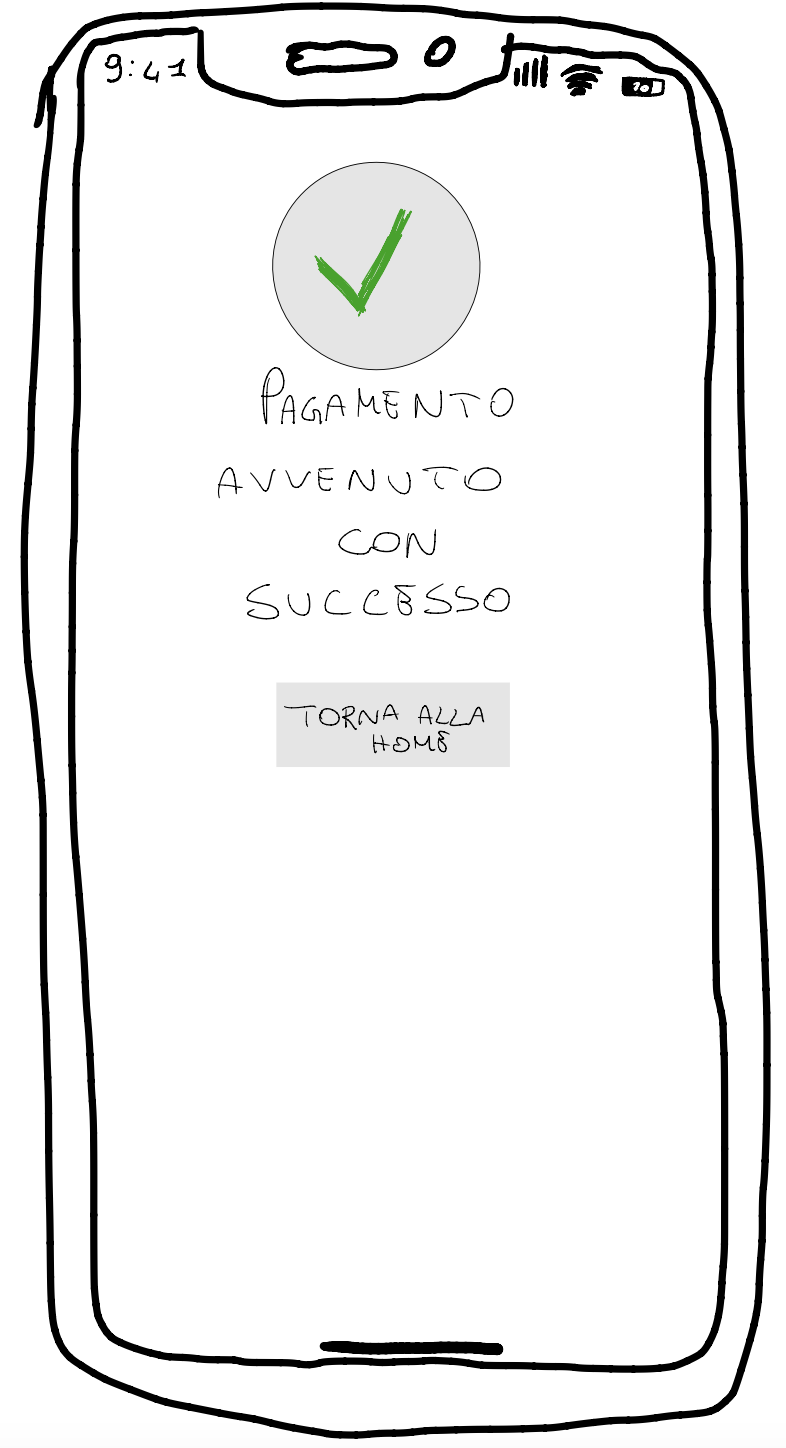 9:41
70
PAGAMENTO
AVVENUTO
CON
SUCCESSO
TORNA ALLA
HOME